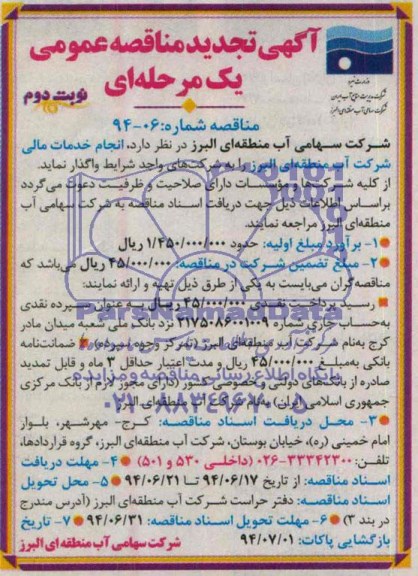 آگهی تجدید مناقصه عمومی
یک مرحله‌ای
نوبت دوم
وزارت نیرو
شرکت مدیریت منابع آب ایران
شرکت سهامی آب منطقه‌ای البرز
مناقصه شماره: ۰۶-۹۴
شرکت سهامی آب منطقه‌ای البرز در نظر دارد، انجام خدمات مالی
شرکت آب منطقه‌ای البرز را به شرکت‌های واجد شرایط واگذار نماید.
از کلیه شرکت‌ها و مؤسسات دارای صلاحیت و ظرفیت دعوت می‌گردد
براساس اطلاعات ذیل جهت دریافت اسناد مناقصه به شرکت سهامی آب
منطقه‌ای البرز مراجعه نمایند.
۱- برآورد مبلغ اولیه: حدود ۱/۴۵۰/۰۰۰/۰۰۰ ریال
۲- مبلغ تضمین شرکت در مناقصه: ۴۵/۰۰۰/۰۰۰ ریال می‌باشد که
مناقصه‌گران می‌بایست به یکی از طرق ذیل تهیه و ارائه نمایند:
رسید پرداخت نقدی ۴۵/۰۰۰/۰۰۰ ریال به عنوان سپرده نقدی
به‌حساب جاری شماره ۲۱۷۵۰۸۶۰۰۱۰۰۹ نزد بانک ملی شعبه میدان مادر
کرج به‌نام شرکت آب منطقه‌ای البرز (تمرکز وجوه سپرده) ضمانت‌نامه
بانکی به‌مبلغ ۴۵/۰۰۰/۰۰۰ ریال و مدت اعتبار حداقل ۳ ماه و قابل تمدید
صادره از بانک‌های دولتی و خصوصی کشور (دارای مجوز لازم از بانک مرکزی
جمهوری اسلامی ایران) به‌نام شرکت آب منطقه‌ای البرز
۳- محل دریافت اسناد مناقصه: کرج- مهرشهر، بلوار
امام خمینی (ره)، خیابان بوستان، شرکت آب منطقه‌ای البرز، گروه قراردادها،
تلفن: ۳۳۳۴۲۳۰۰-۰۲۶ (داخلی ۵۳۰ و ۵۰۱) ۴- مهلت دریافت
اسناد مناقصه: از تاریخ ۹۴/۰۶/۱۷ تا ۹۴/۰۶/۲۱ ۵- محل تحویل
اسناد مناقصه: دفتر حراست شرکت آب منطقه‌ای البرز (آدرس مندرج
در بند ۳) ۶- مهلت تحویل اسناد مناقصه: ۹۴/۰۶/۳۱ ۷- تاریخ
بازگشایی پاکات: ۹۴/۰۷/۰۱ شرکت سهامی آب منطقه‌ای البرز
ParsNamadData
پایگاه اطلاع رسانی مناقصه و مزایده
۰۲۱-۸۸۳۴۹۶۷۰-۵